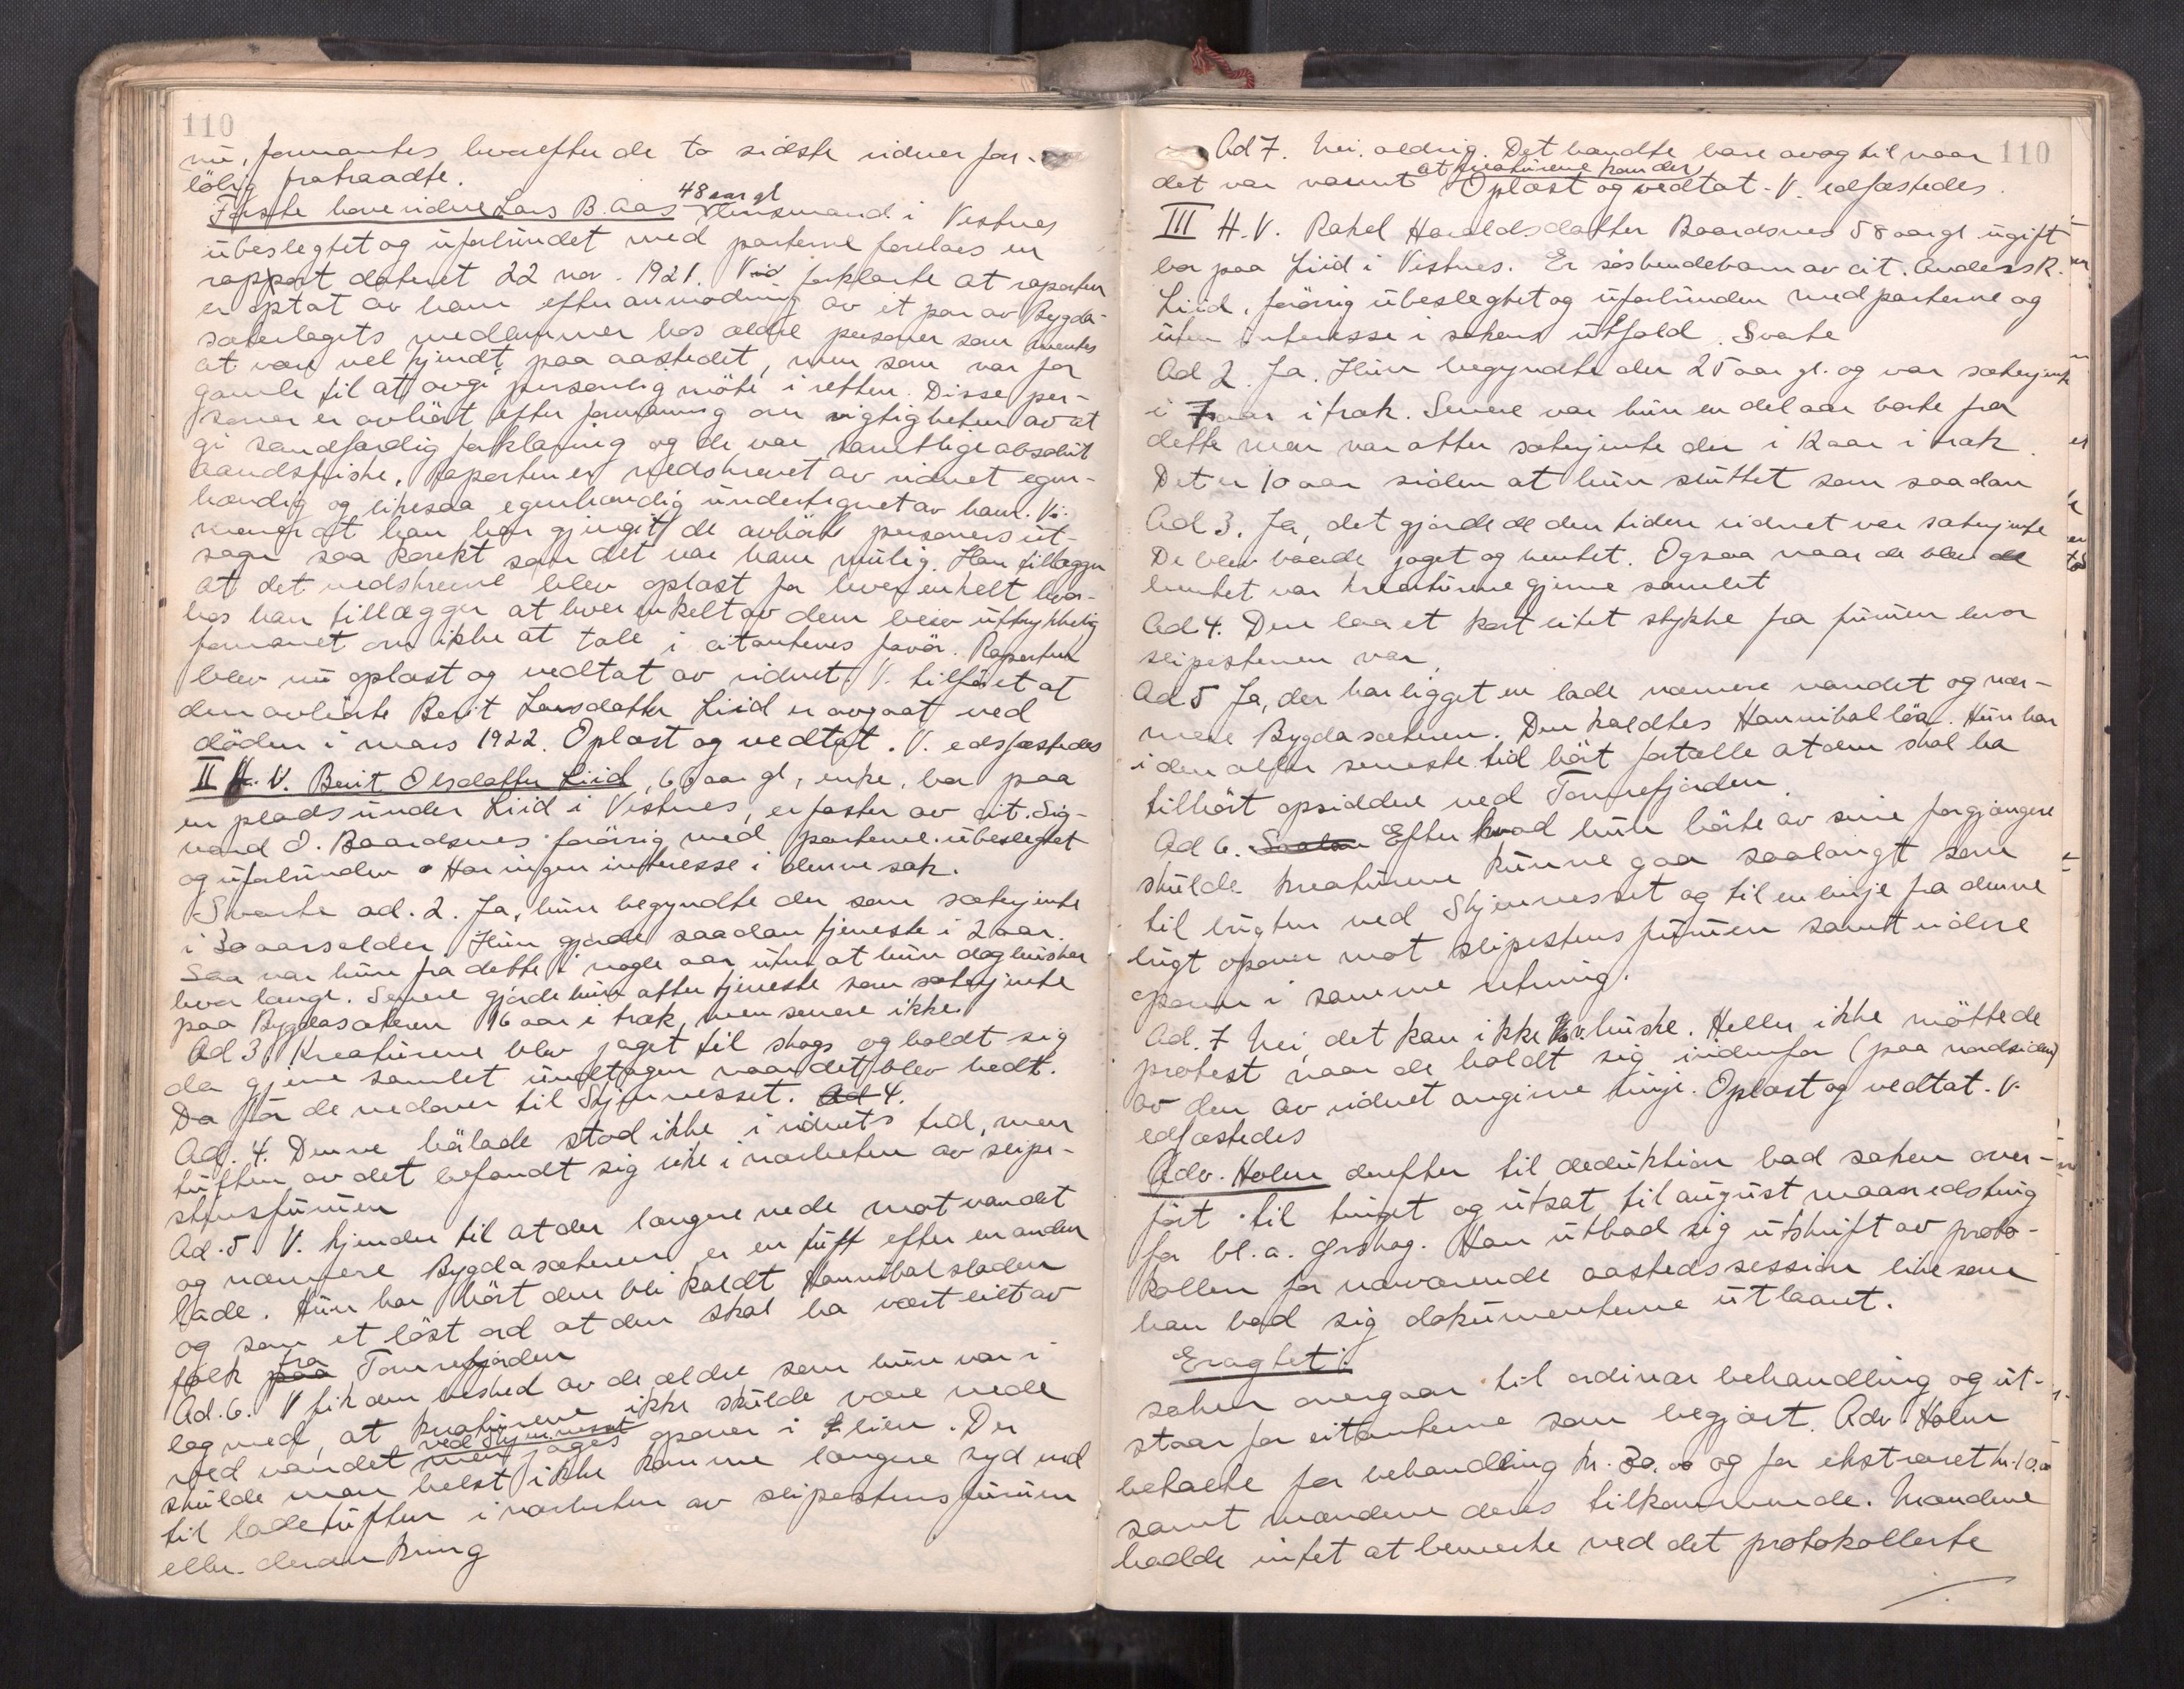 110
nu, formantes hvorefter de to sidste vidner for-
løbig fratraadte.
Første hovedvidne Lars B. Aas 48 aar gl lensmand i Vestnes
ubeslegtet og uforbundet med parterne forelaes en
rapport datert 22 nov. 1921. Vid forklarte at raporten
er optat av ham efter anmodning av et par av Bygda-
sæterlagets medlemmer hos ældre personer som mentes
at være vel kjendt paa aastedet, men som var for
gamle til at avgi personlig møte i retten. Disse per-
soner er avhørt efter formaning om vigtigheten av at
gi sandfærdig forklaring og de var samtlige absolut
aandsfriske. Raporten er nedskrevet av vidnet egen-
hændig og likesaa egenhændig undertegnet av ham. Vi.
mener at han har gjengit de avhørte personers ut-
sagn saa korekt som det var ham mulig. Han tillægger
at det nedskrevne blev oplæst for hver enkelt hvor-
hos han tillægger at hver enkelt av dem blev uttrykkelig
formanet om ikke at tale i citantenes favør. Raporten
blev nu oplæst og vedtat av vidnet. V. tilføiet at
den avhørte Berit Larsdatter Liid er avgaat ved
døden i mars 1922. Oplæst og vedtat. V. edsfæstedes
II H. V. Berit Olsdatter Liid, 66 aar gl, enke, bor paa
en plads under Liid i Vestnes, er faster av cit. Sig-
vard O. Baardsnes forøvrig med parterne ubeslegtet
og uforbunden. Har ingen interesse i denne sak.
Svarte ad. 2. Ja, hun begyndte der som sæterjente
i 30 aarsalder. Hun gjorde saadan tjeneste i 2 aar.
Saa var hun fra dette i nogle aar uten at hun dog husker
hvor længe. Senere gjorde hun atter tjeneste som sæterjente
paa Bygdasæteren 16 aar i træk, men senere ikke.
Ad 3. Kreaturene blev jaget til skogs og holdt sig
da gjerne samlet undtagen naar det blev hedt.
Da før de nedover til Skjennesset. Ad 4.
Ad. 4. Denne hølade stod ikke i vidnets tid, men
tuften av det befandt sig like i nærheten av slipe-
stensfuruen
Ad. 5. V. kjender til at der længere nede mot vandet
og nærmere Bygdasæteren er en tuft efter en anden
lade. Hun har hørt den bli kaldt Hannibalsladen
og som et løst ord at den skal ha vært eiet av
folk paa fra Tomrefjorden
Ad. 6. V fik den besked av de ældre som hun var i
lag med, at kreaturene ikke skulde være nede
ved vandet ved Skjennesset men jages opover i Lien. Der
skulde man helst ikke komme længere syd end
til ladetuften i nærheten av slipestensfuruen
eller deromkring

110
Ad 7. Nei aldrig. Det hændte bare av og til naar
det var varmt at kreaturene kom der. Oplæst og vedtat. V. edfæstedes.
III H. V. Rakel Haraldsdatter Baardsnes 58 aar gl ugift
bor paa Liid i Vestnes. Er søskendebarn av cit. Anders K.
Liid, forøvrig ubeslegtet og uforbunden med parterne og
uten interesse i sakens utfald. Svarte
Ad 2. Ja. Hun begyndte der 25 aar gl. og var sæterjente
i 7 aar i træk. Senere var hun en del aar borte fra
dette men var atter sæterjente der i 12 aar i træk.
Det er 10 aar siden at hun sluttet som saadan
Ad 3. Ja, det gjorde de den tiden vidnet var sæterjente
De blev baade jaget og hentet. Ogsaa naar de blev de
hentet var kreaturene gjerne samlet
Ad 4. Den laa et kort litet stykke fra furuen hvor
slipestenen var.
Ad 5 Ja, der har ligget en lade nærmere vandet og nær-
mere Bygdasæteren. Den kaldtes Hannibal løa. Hun har
i den aller seneste tid hørt fortælle at den skal ha
tilhørt opsiddere ved Tomrefjorden.
Ad 6. Efter hvad hun hørte av sine forgjængere
skulde kreaturene kunne gaa saalangt som
til bugten ved Skjennesset og til en linje fra denne
bugt opover mot slipestensfuruen samt videre
opover i samme retning.
Ad. 7 Nei, det kan ikke V. huske. Heller ikke møtte de
protest naar de holdt sig indenfor (paa nordsiden)
av den av vidnet angivne linje. Oplæst og vedtat. V.
edfæstedes
Adv. Holm derefter til deduktion bad saken over-
ført til tinget og utsat til august maanedsting
for bl. a. Ørskog. Han utbad sig utskrift av proto-
kollen for nærværende aastedssession like som
han bad sig dokumenterne utlaant.
Eragtet:
saken overgaar til ordinær behandling og ut-
staar for citanterne som begjært. Adv Holm
betalte for behandling kr. 30.00 og for ekstraret kr. 10.00
samt mændene deres tilkommende. Mændene
hadde intet at bemerke ved det protokollerte